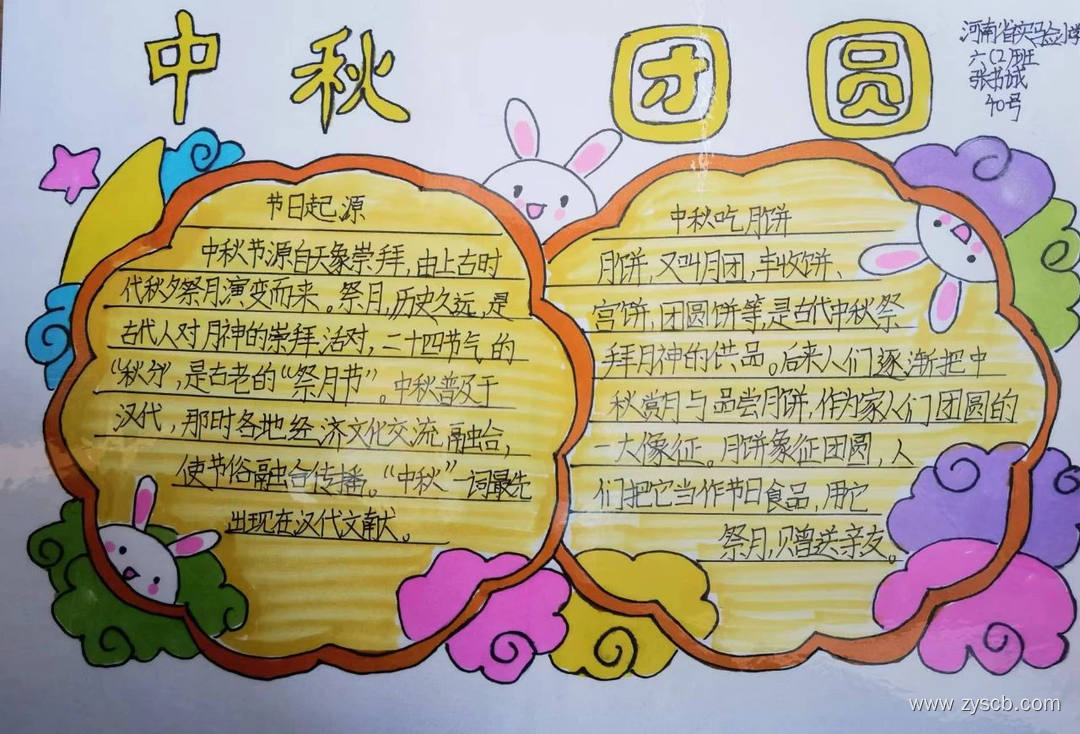 中秋 团圆
河南省实验小学
六(2)班
张书城
40号
节日起源
中秋节源自天象崇拜,由上古时
代秋夕祭月演变而来。祭月,历史久远,是
古代人对月神的崇拜活动,二十四节气的
“秋分”,是古老的“祭月节”。中秋普及于
汉代,那时各地经济文化交流融合,
使节俗融合传播。“中秋”一词最先
出现在汉代文献。
中秋吃月饼
月饼,又叫月团,丰收饼、
宫饼,团圆饼等,是古代中秋祭
拜月神的供品。后来人们逐渐把中
秋赏月与品尝月饼,作为家人们团圆的
一大像征。月饼象征团圆,人
们把它当作节日食品,用它
祭月,赠送亲友。
www.zyscb.com